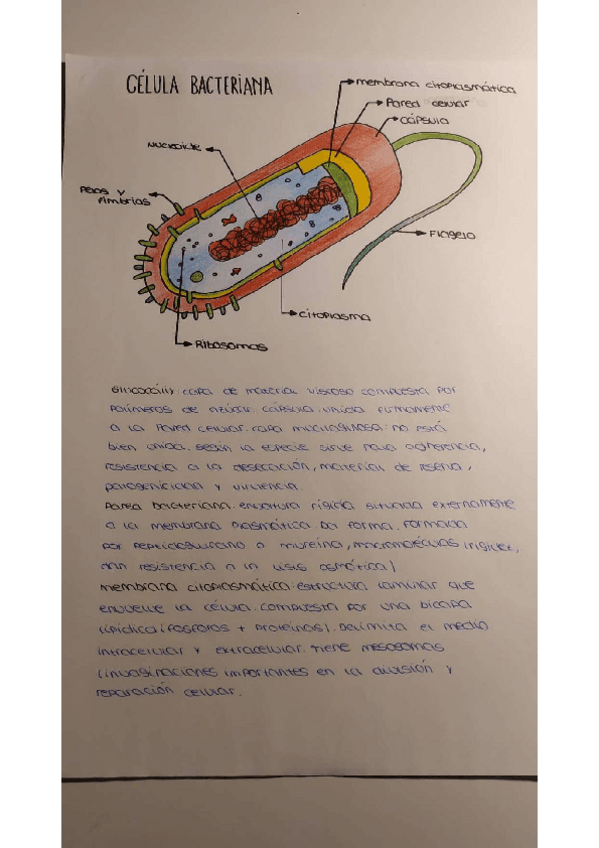 CÉLULA BACTERIANA
membrana citoplasmática
Pared celular
cápsula
Nucleoide
Pelos y
fimbrias
Flagelo
citoplasma
Ribosomas
Glucocálix: capa de material viscoso compuesta por
polímeros de azúcar. cápsula: unida firmemente
a la pared celular. capa mucilaginosa: no está
bien unida. según la especie sirve para adherencia,
resistencia a la desecación, material de reserva,
patogenicidad y virulencia.
Pared bacteriana: envoltura rígida situada externamente
a la membrana plasmática. Da forma. Formada
por peptidoglucano o mureína, macromoléculas
resistencia a la lisis osmótica)
membrana citoplasmática: estructura laminar que
envuelve la célula. compuesta por una bicapa
lipídica (fosforos + proteínas). Delimita el medio
intracelular y extracelular. Tiene mesosomas
(invaginaciones importantes en la división y
reparación celular.